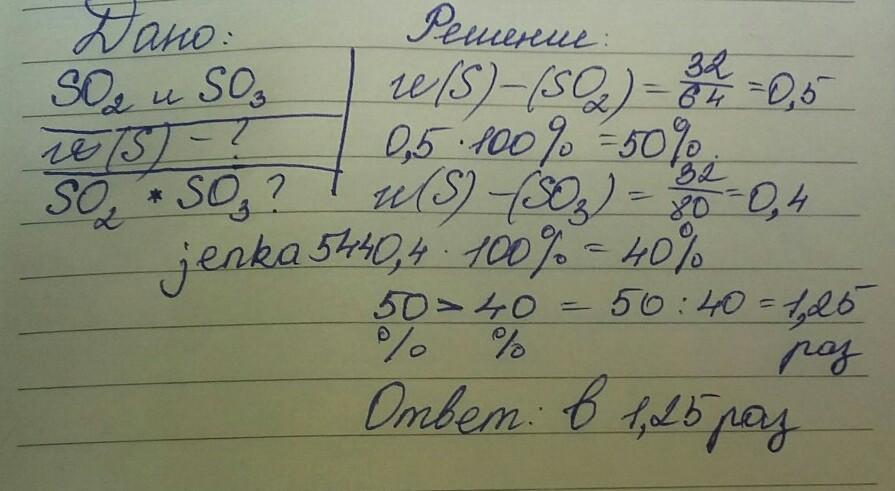 Дано:
SO2 и SO3
w(S) - ?
SO2 * SO3?
Решение:
w(S) - (SO2) = 32/64 = 0,5
0,5 · 100% = 50%.
w(S) - (SO3) = 32/80 = 0,4
jenka5440,4 · 100% = 40%
50 > 40 = 50 : 40 = 1,25
% % раз
Ответ: в 1,25 раз